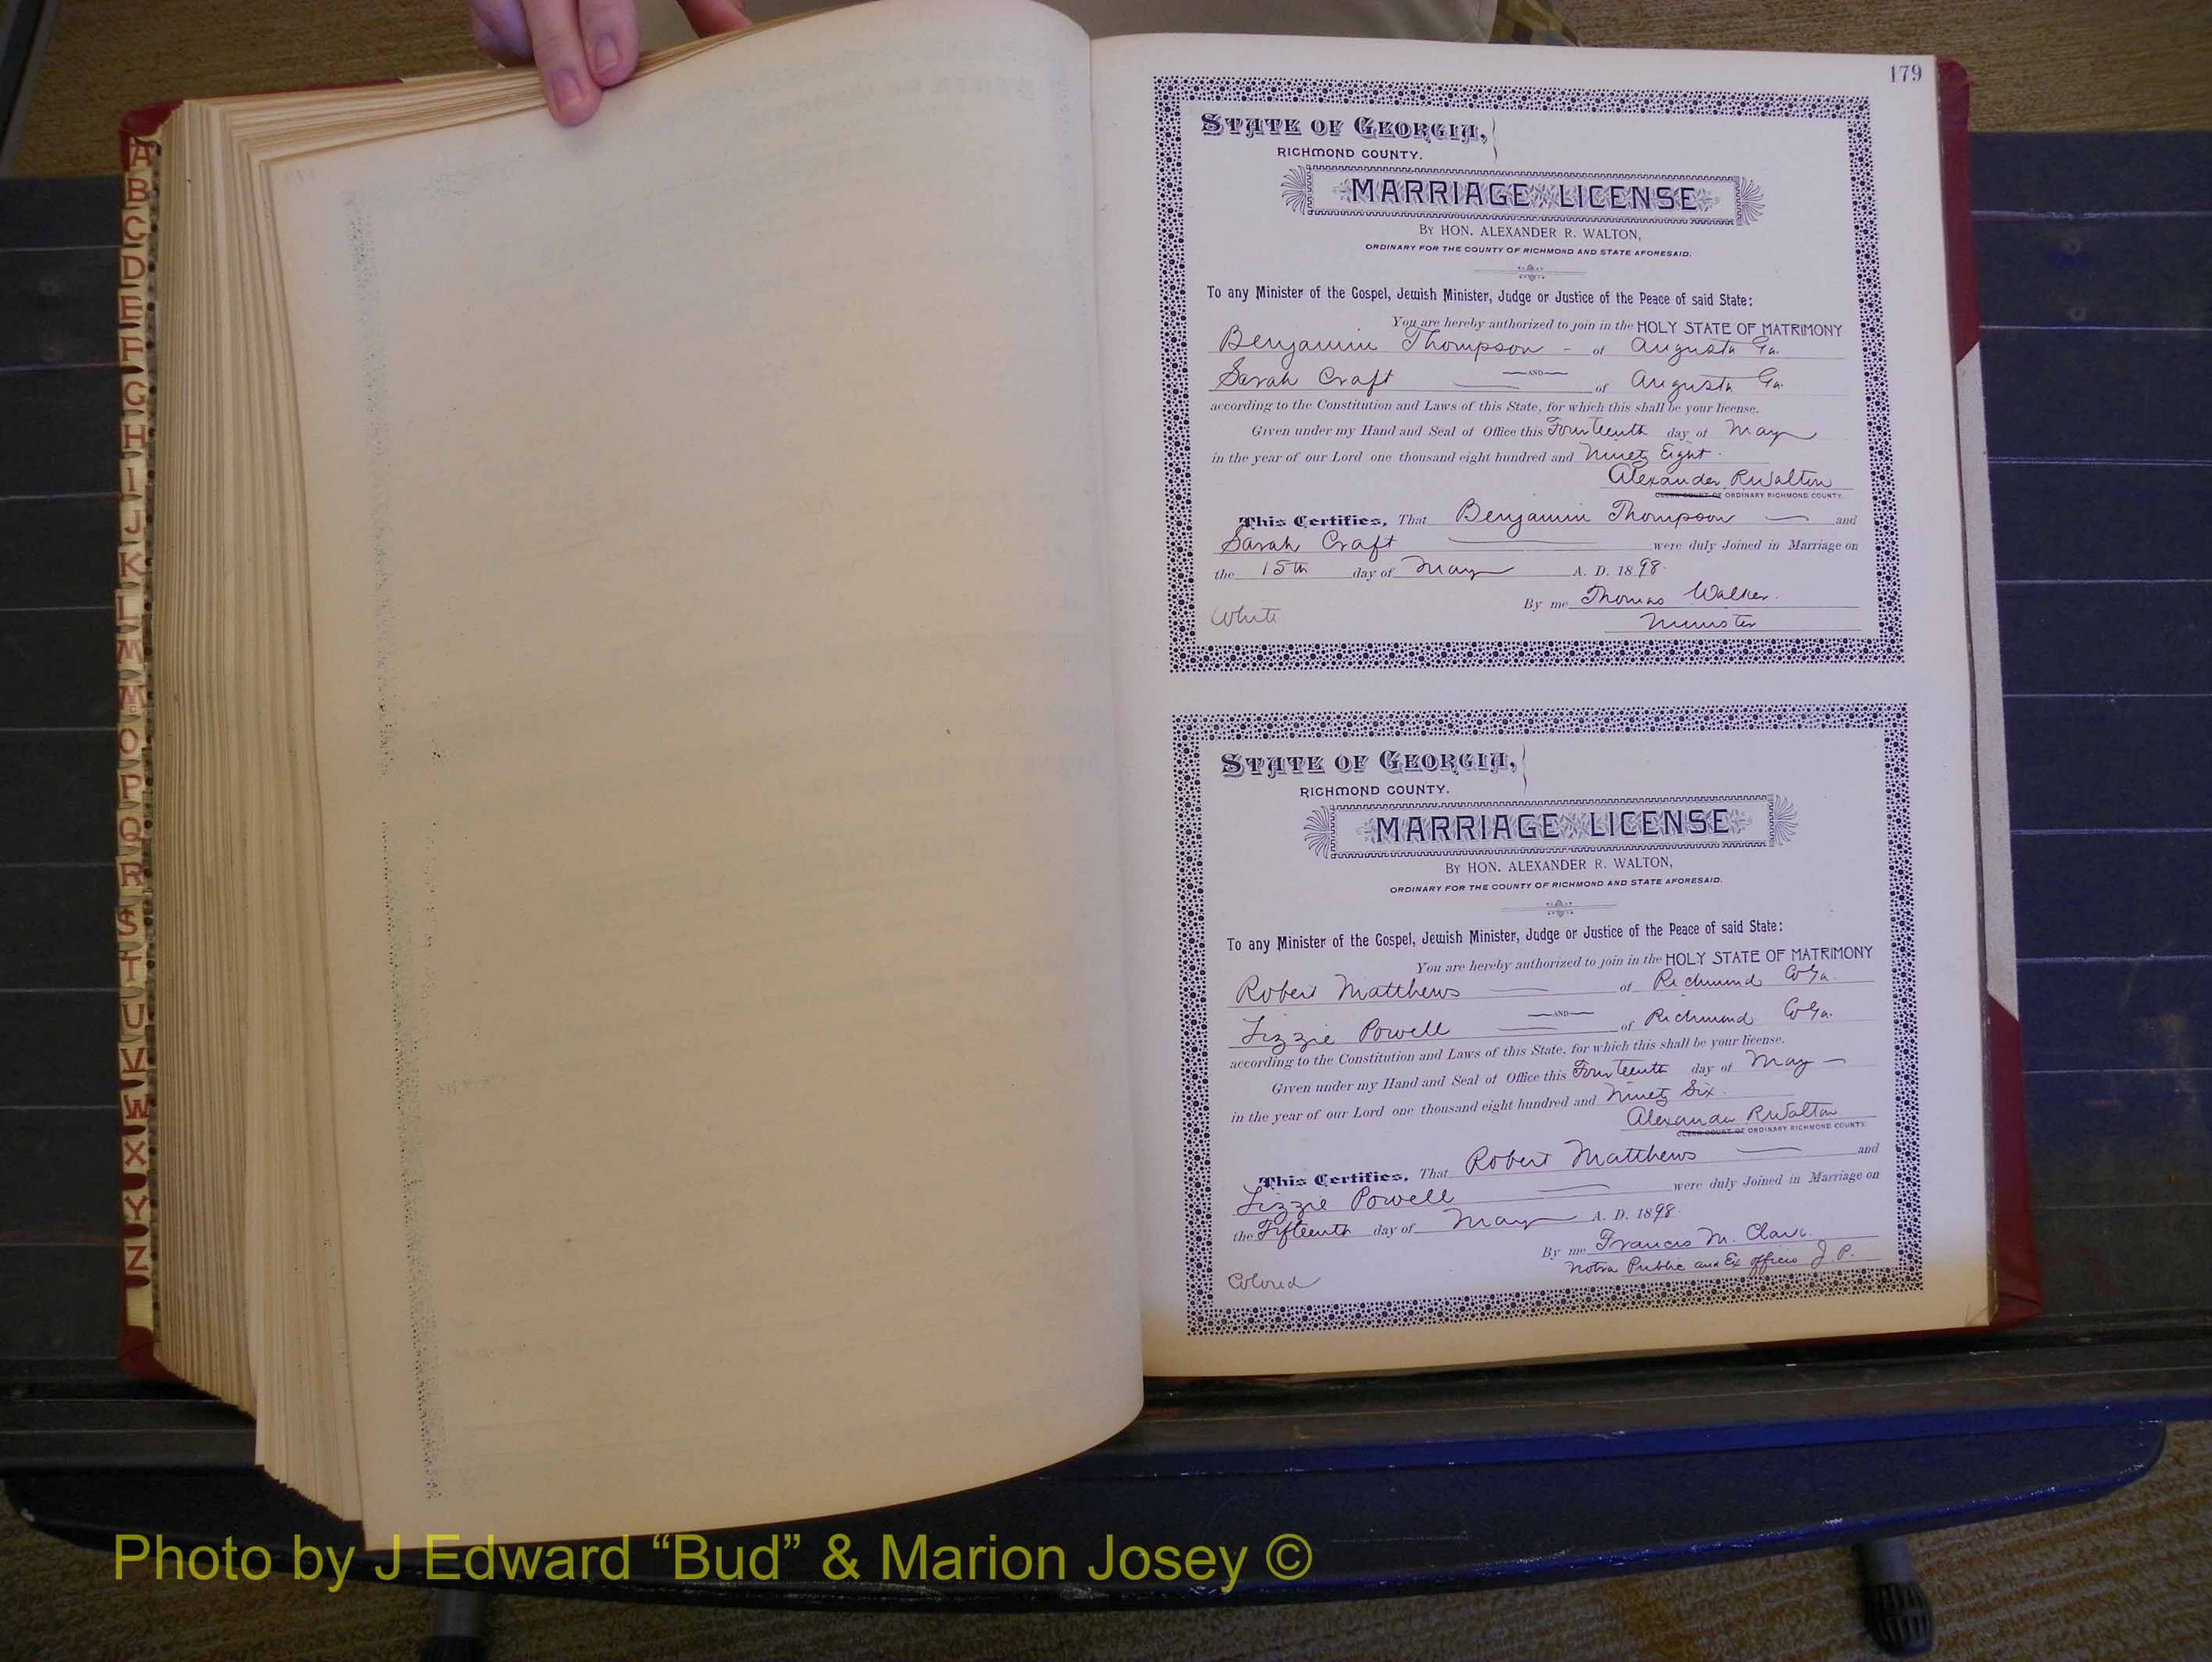 179
STATE OF GEORGIA,
RICHMOND COUNTY.
MARRIAGE LICENSE
BY HON. ALEXANDER R. WALTON,
ORDINARY FOR THE COUNTY OF RICHMOND AND STATE AFORESAID.
To any Minister of the Gospel, Jewish Minister, Judge or Justice of the Peace of said State:
You are hereby authorized to join in the HOLY STATE OF MATRIMONY
Benjamin Thompson - of Augusta Ga.
AND
Sarah Craft of Augusta Ga.
according to the Constitution and Laws of this State, for which this shall be your license.
Given under my Hand and Seal of Office this Fourteenth day of May
in the year of our Lord one thousand eight hundred and Ninety Eight.
Alexander R Walton
CLERK COURT OF ORDINARY RICHMOND COUNTY.
This Certifies, That Benjamin Thompson and
Sarah Craft were duly Joined in Marriage on
the 15th day of May A. D. 1898.
By me Thomas Walker.
White Minister
STATE OF GEORGIA,
RICHMOND COUNTY.
MARRIAGE LICENSE
BY HON. ALEXANDER R. WALTON,
ORDINARY FOR THE COUNTY OF RICHMOND AND STATE AFORESAID.
To any Minister of the Gospel, Jewish Minister, Judge or Justice of the Peace of said State:
You are hereby authorized to join in the HOLY STATE OF MATRIMONY
Robert Matthews of Richmond Co Ga.
AND
Lizzie Powell of Richmond Co Ga.
according to the Constitution and Laws of this State, for which this shall be your license.
Given under my Hand and Seal of Office this Fourteenth day of May
in the year of our Lord one thousand eight hundred and Ninety Six.
Alexander R Walton
CLERK COURT OF ORDINARY RICHMOND COUNTY.
This Certifies, That Robert Matthews and
Lizzie Powell were duly Joined in Marriage on
the Fifteenth day of May A. D. 1898.
By me Francis M. Clark.
Notra Public and Ex officio J. P.
Colored
A
B
C
D
E
F
G
H
I
J
K
L
M
Mc
O
P
Q
R
S
T
U
V
W
X
Y
Z
Photo by J Edward “Bud” & Marion Josey ©